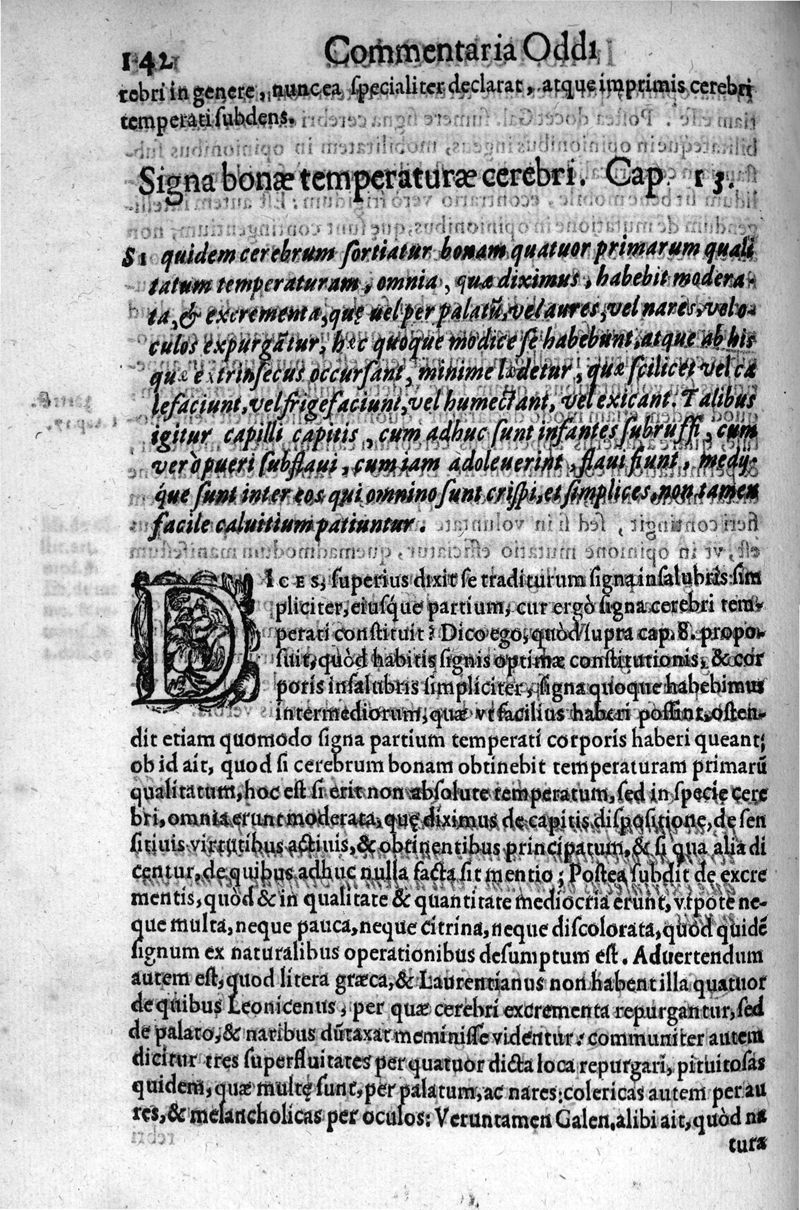 142 Commentaria Oddi
rebri in genere, nunc ea specialiter declarat, atque imprimis cerebri
temperati subdens.
Signa bonæ temperaturæ cerebri. Cap. 13.
SI quidem cerebrum sortiatur bonam quatuor primarum quali
tatum temperaturam, omnia, quæ diximus, habebit modera-
ta, & excrementa, quę uel per palatū, vel aures, vel nares, vel o-
culos expurgātur, hæc quoque modice se habebunt, atque ab his
quæ extrinsecus occursant, minime lædetur, quæ scilicet vel ca
lefaciunt, vel frigefaciunt, vel humectant, vel exicant. Talibus
igitur capilli capitis, cum adhuc sunt infantes subruffi, cum
verò pueri subflaui, cum iam adoleuerint, flaui fiunt, medij-
que sunt inter eos qui omnino sunt crispi, et simplices, non tamen
facile caluitium patiuntur.
DICES, superius dixit se traditurum signa insalubris sim
pliciter, eiusque partium, cur ergò signa cerebri tem-
perati constituit? Dico ego, quòd supra cap. 8. propo-
suit, quòd habitis signis optimæ constitutionis, & cor
poris insalubris simpliciter, signa quoque habebimus
intermediorum, quæ vt facilius haberi possint, osten-
dit etiam quomodo signa partium temperati corporis haberi queant;
ob id ait, quod si cerebrum bonam obtinebit temperaturam primarū
qualitatum, hoc est si erit non absolute temperatum, sed in specie cere
bri, omnia erunt moderata, quę diximus de capitis dispositione, de sen
sitiuis virtutibus actiuis, & obtinentibus principatum, & si qua alia di
centur, de quibus adhuc nulla facta sit mentio; Postea subdit de excre
mentis, quòd & in qualitate & quantitate mediocria erunt, vtpote ne-
que multa, neque pauca, neque citrina, neque discolorata, quod quidē
signum ex naturalibus operationibus desumptum est. Aduertendum
autem est, quod litera græca, & Laurentianus non habent illa quatuor
de quibus Leonicenus, per quæ cerebri excrementa repurgantur, sed
de palato, & naribus dūtaxat meminisse videntur: communiter autem
dicitur tres superfluitates per quatuor dicta loca repurgari, pituitosas
quidem, quæ multę sunt, per palatum, ac nares: colericas autem per au
res, & melancholicas per oculos: Veruntamen Galen. alibi ait, quòd na
tura